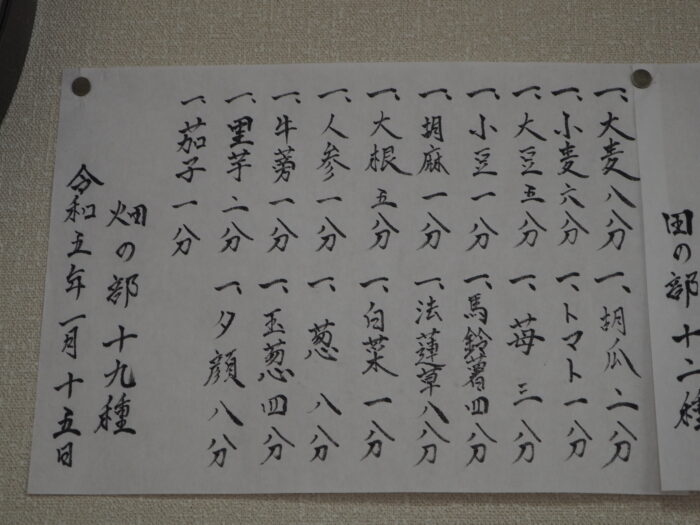 田の部十二種
一、大麦八分
一、小麦六分
一、大豆五分
一、小豆一分
一、胡麻一分
一、大根五分
一、人参一分
一、牛蒡一分
一、里芋二分
一、茄子一分
一、胡瓜二分
一、トマト一分
一、苺三分
一、馬鈴薯四分
一、法蓮草八分
一、白菜一分
一、葱八分
一、玉葱四分
一、夕顔八分
畑の部十九種
令和五年一月十五日